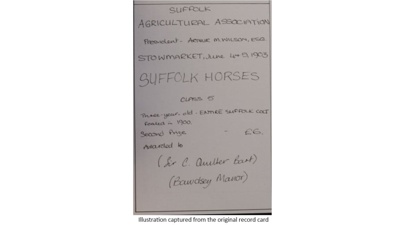 SUFFOLK
AGRICULTURAL ASSOCIATION
President - Arthur M. Wilson, Esq.
STOWMARKET, June 4 & 5, 1903
SUFFOLK HORSES
CLASS 5
Three-year-old - ENTIRE SUFFOLK COLT
foaled in 1900.
Second Prize - £6.
Awarded to
(Sir C. Quilter Bart)
(Bawdsey Manor)
Illustration captured from the original record card